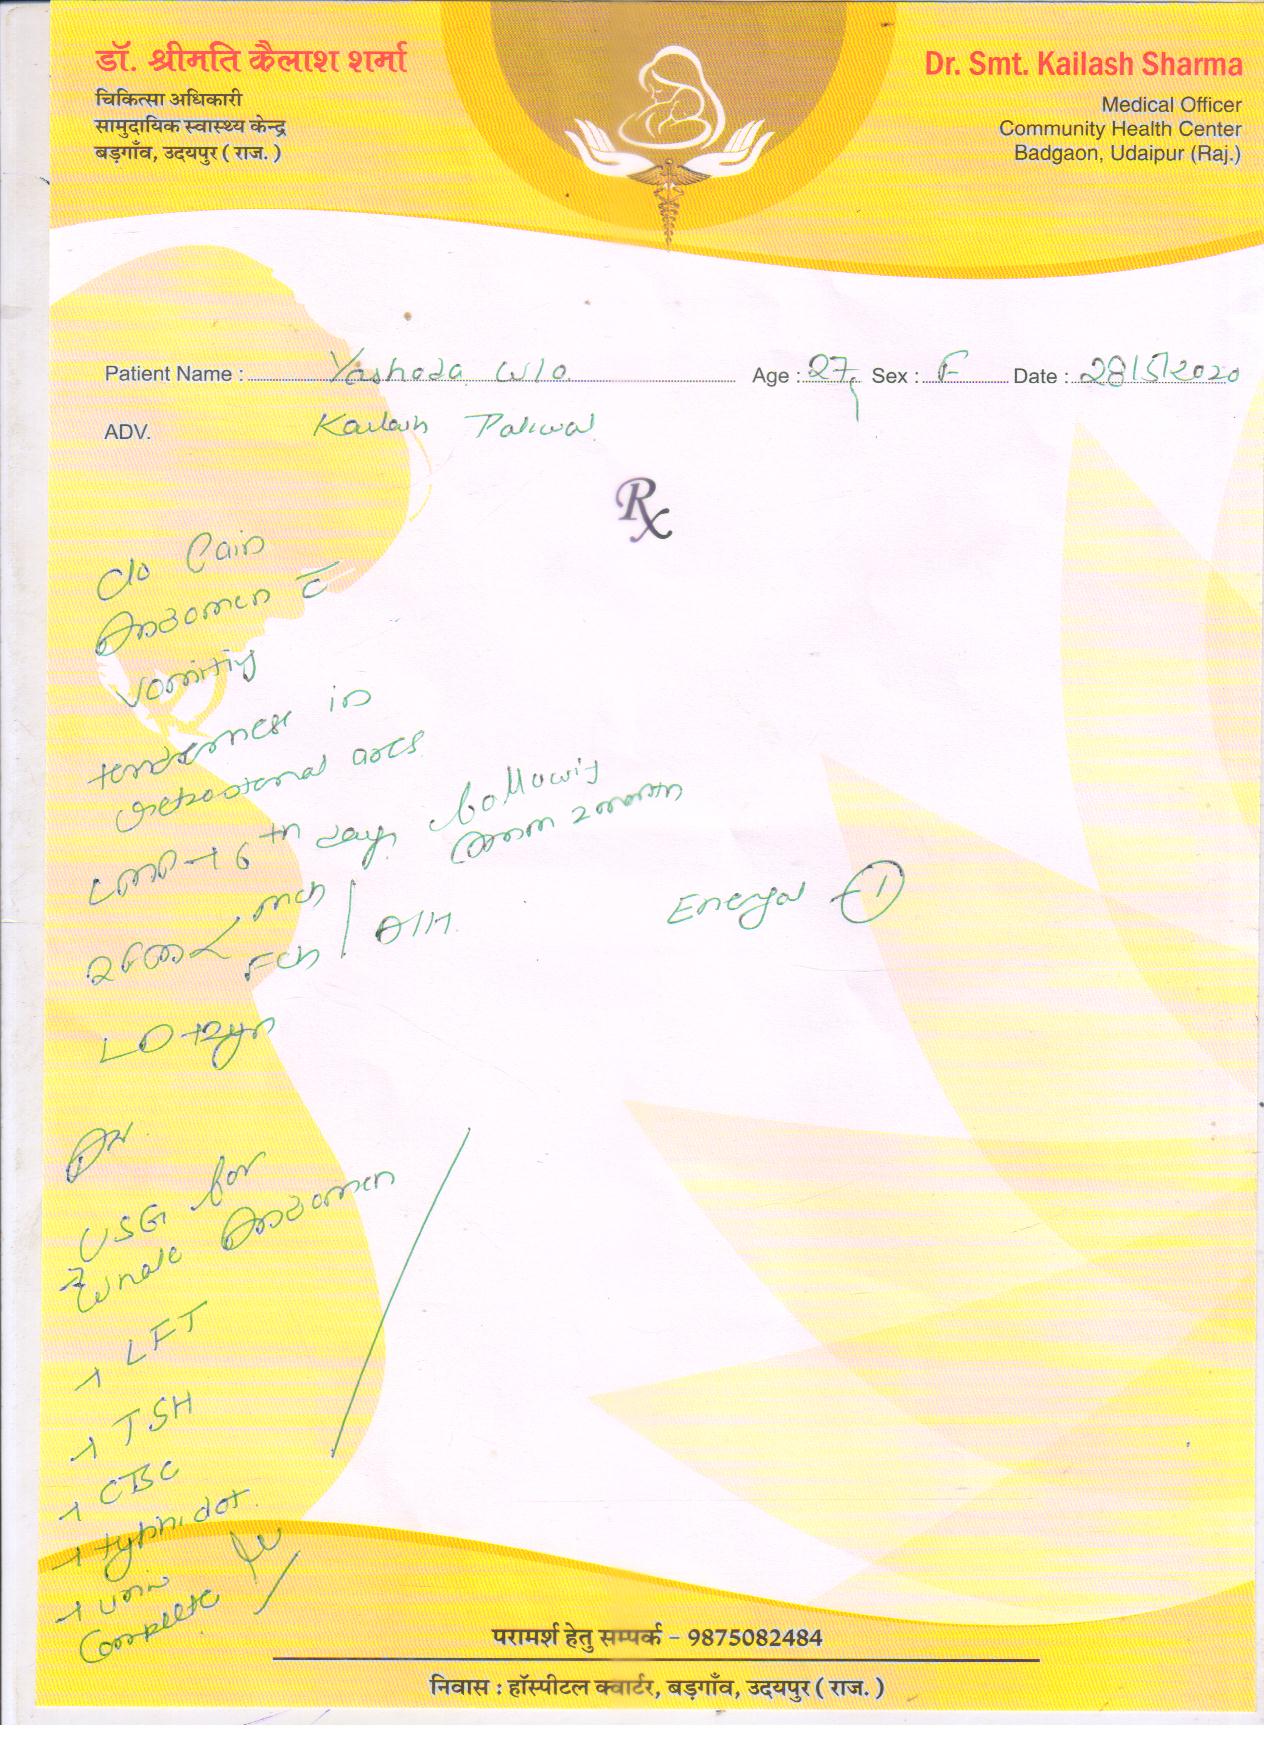 डॉ. श्रीमति कैलाश शर्मा
चिकित्सा अधिकारी
सामुदायिक स्वास्थ्य केन्द्र
बड़गाँव, उदयपुर ( राज. )
Dr. Smt. Kailash Sharma
Medical Officer
Community Health Center
Badgaon, Udaipur (Raj.)
Patient Name : Yashoda W/O Age : 27 Sex : F Date : 28/5/2020
ADV. Kailash Paliwal
Rx
C/o Pain
Abdomen c̄
Vomiting
tenderness in
LMP → 6th day following 2 month
mch
Fch
Energal - 1
USG for
whole Abdomen
→ LFT
→ TSH
→ CBC
→ typhidot
→ urine
Complete
परामर्श हेतु सम्पर्क – 9875082484
निवास : हॉस्पीटल क्वार्टर, बड़गाँव, उदयपुर ( राज. )